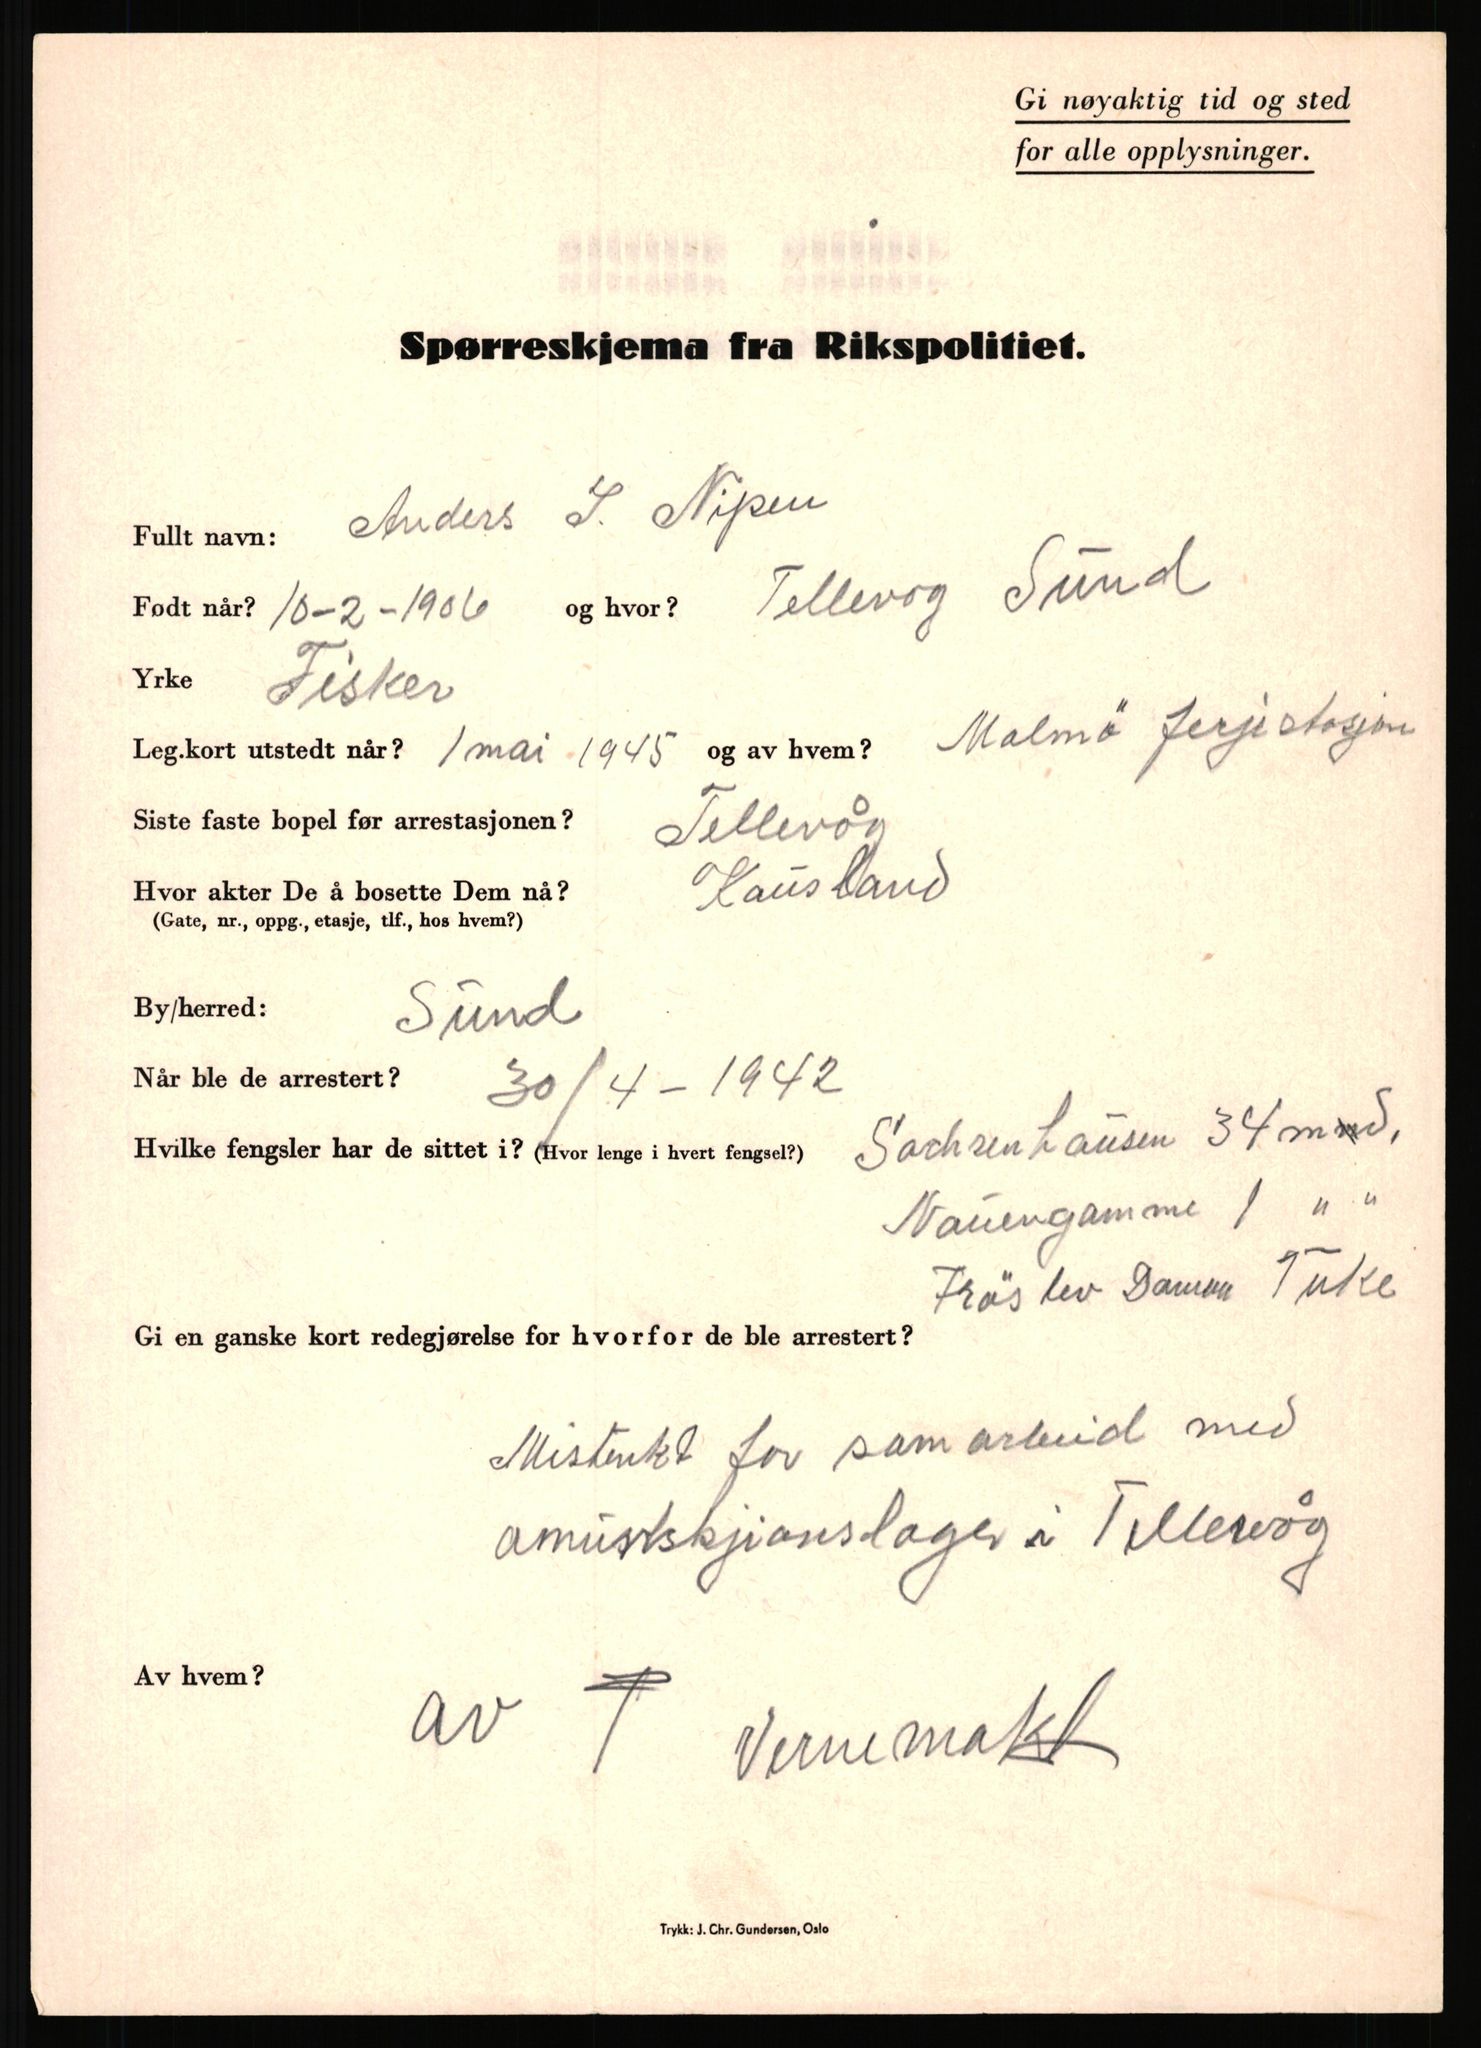 Gi nøyaktig tid og sted
for alle opplysninger.
Spørreskjema fra Rikspolitiet.
Fullt navn: Anders I. Nipen
Født når? 10-2-1906 og hvor? Tellevog Sund
Yrke Fisker
Leg.kort utstedt når? 1 mai 1945 og av hvem? Malmö ferjestasjon
Siste faste bopel før arrestasjonen? Tellevåg
Hvor akter De å bosette Dem nå? Kausland
(Gate, nr., oppg., etasje, tlf., hos hvem?)
By/herred: Sund
Når ble de arrestert? 30/4-1942
Hvilke fengsler har de sittet i? (Hvor lenge i hvert fengsel?) Sachsenhausen 34 mnd.
Nauengamme 1 " "
Fröslev 1 uke
Gi en ganske kort redegjørelse for hvorfor de ble arrestert?
Mistenkt for samarbeid med
amuskjionslager i Tellevåg
Av hvem? av T Vernemakt
Trykk: J. Chr. Gundersen, Oslo